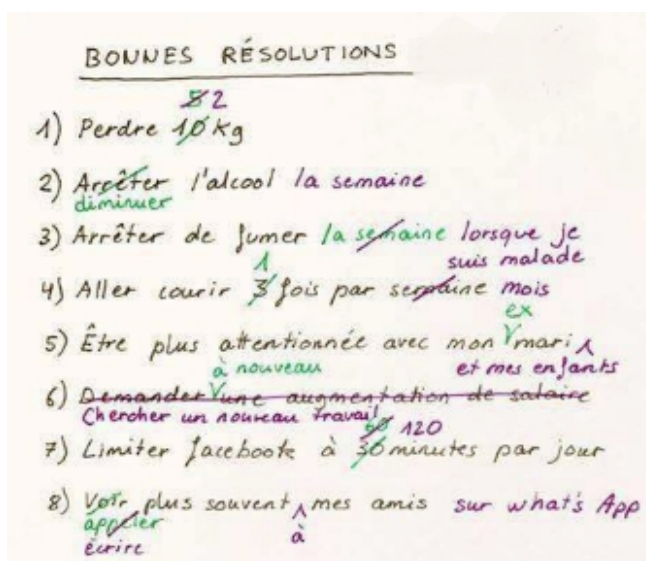 BONNES RÉSOLUTIONS
8 2
1) Perdre 10 kg
2) Arrêter l'alcool la semaine
diminuer
3) Arrêter de fumer la semaine lorsque je
1 suis malade
4) Aller courir 3 fois par semaine mois
ex
5) Être plus attentionnée avec mon mari
à nouveau et mes enfants
6) Demander une augmentation de salaire
Chercher un nouveau travail
60 120
7) Limiter facebook à 30 minutes par jour
8) Voir plus souvent mes amis sur what's App
appeler à
écrire